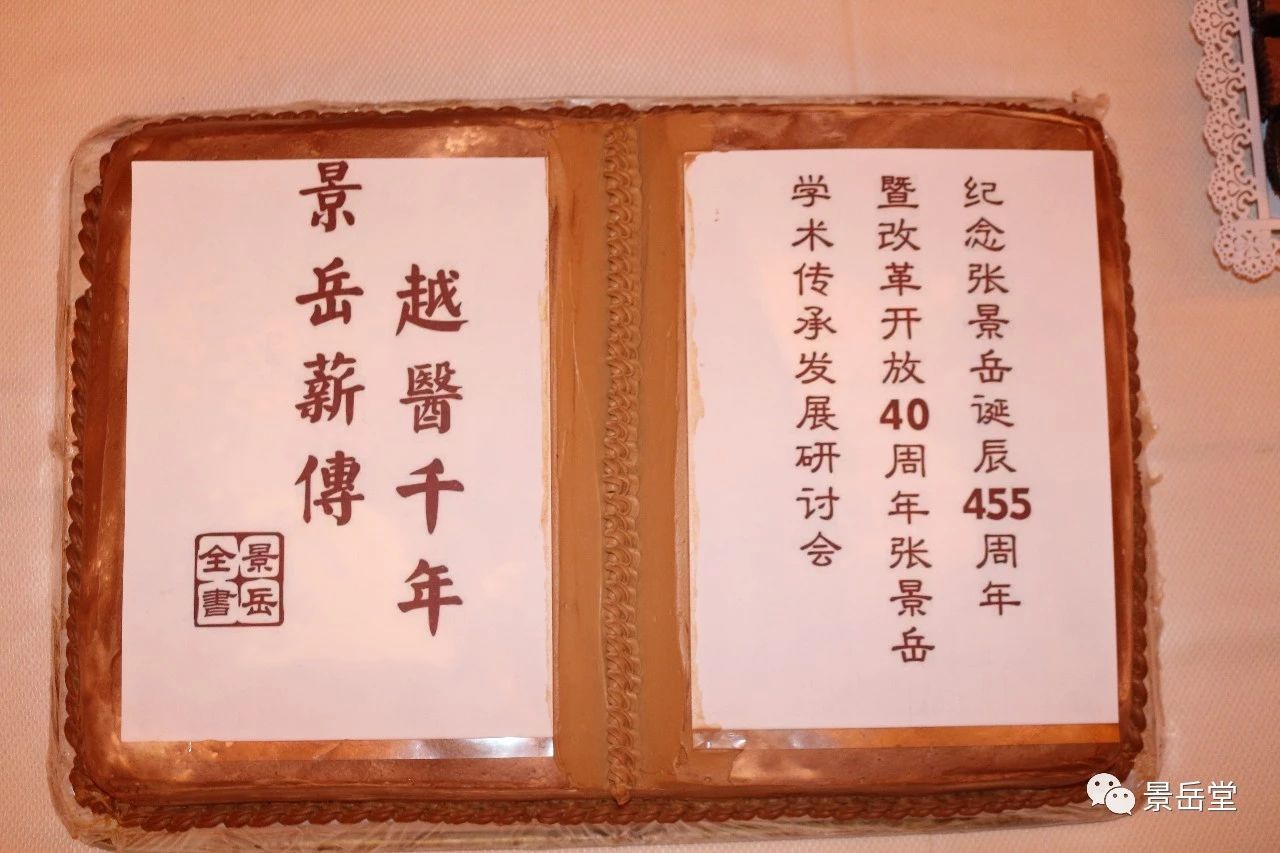 纪念张景岳诞辰455周年
暨改革开放40周年张景岳
学术传承发展研讨会
越醫千年
景岳薪傳
景岳
全書
景岳堂